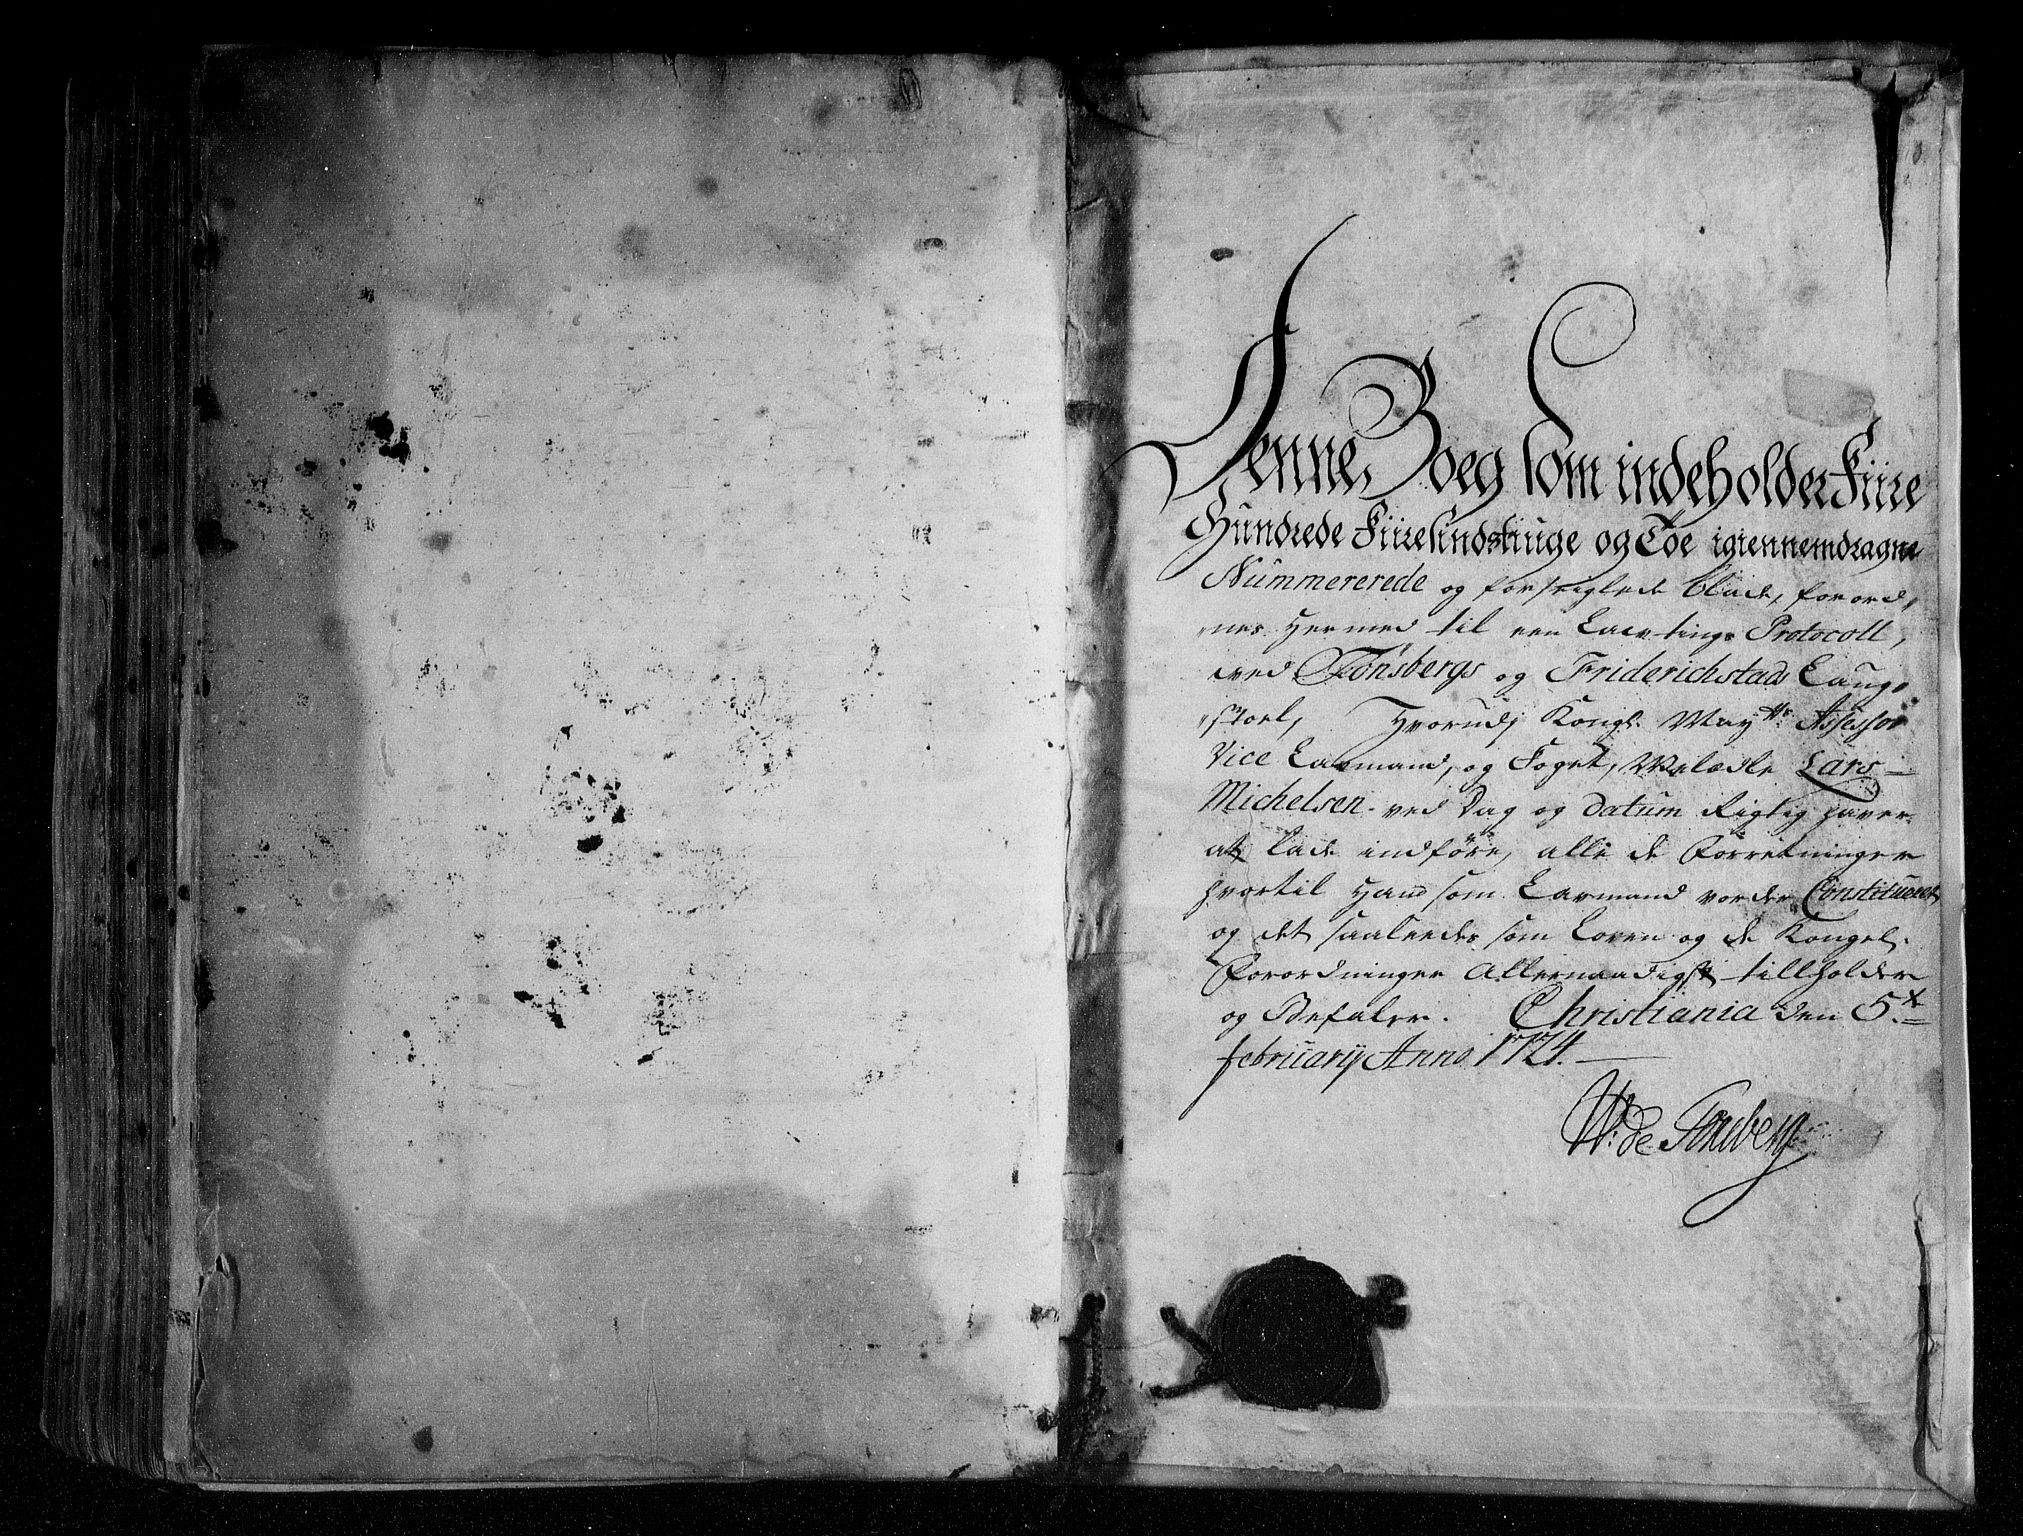 Denne Boeg som indeholder Fiire
Hundrede Fiiresindstiuge og Toe igiennemdragne
Nummererede og forseiglede blade, forord,
nes Hermed til een Laugtings Protocoll,
ved Tonsbergs og Friderichstads Laug,
stoel, Hvorudj Kongl. May.tts Assessor
Vice Laumand, og Foget, Welædle Lars
Michelsen ved Dag og datum Rigtig haver
at lade indføre, alle de Forretninger
hvortil Hand som Laumand vorder Constitueret
og det saaledes som Loven og de Kongel.
Forordninger Allernaadigst tillholder
og Befaler. Christiania den 5.
februarij Anno 1724.
W: de Tonsberg